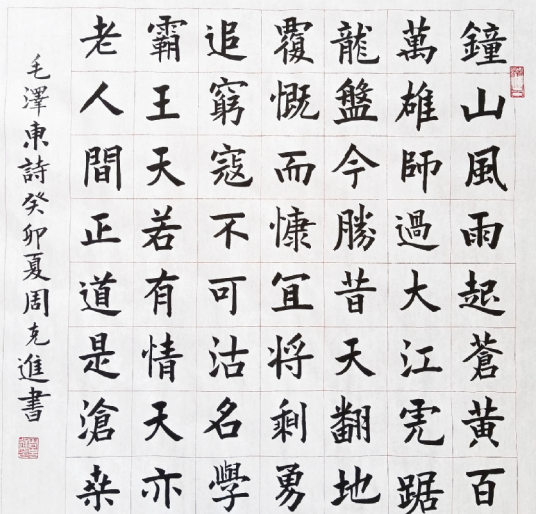 鐘山風雨起蒼黃百
萬雄師過大江虎踞
龍盤今勝昔天翻地
覆慨而慷宜将剩勇
追窮寇不可沽名學
霸王天若有情天亦
老人間正道是滄桒
毛澤東詩癸卯夏周克進書